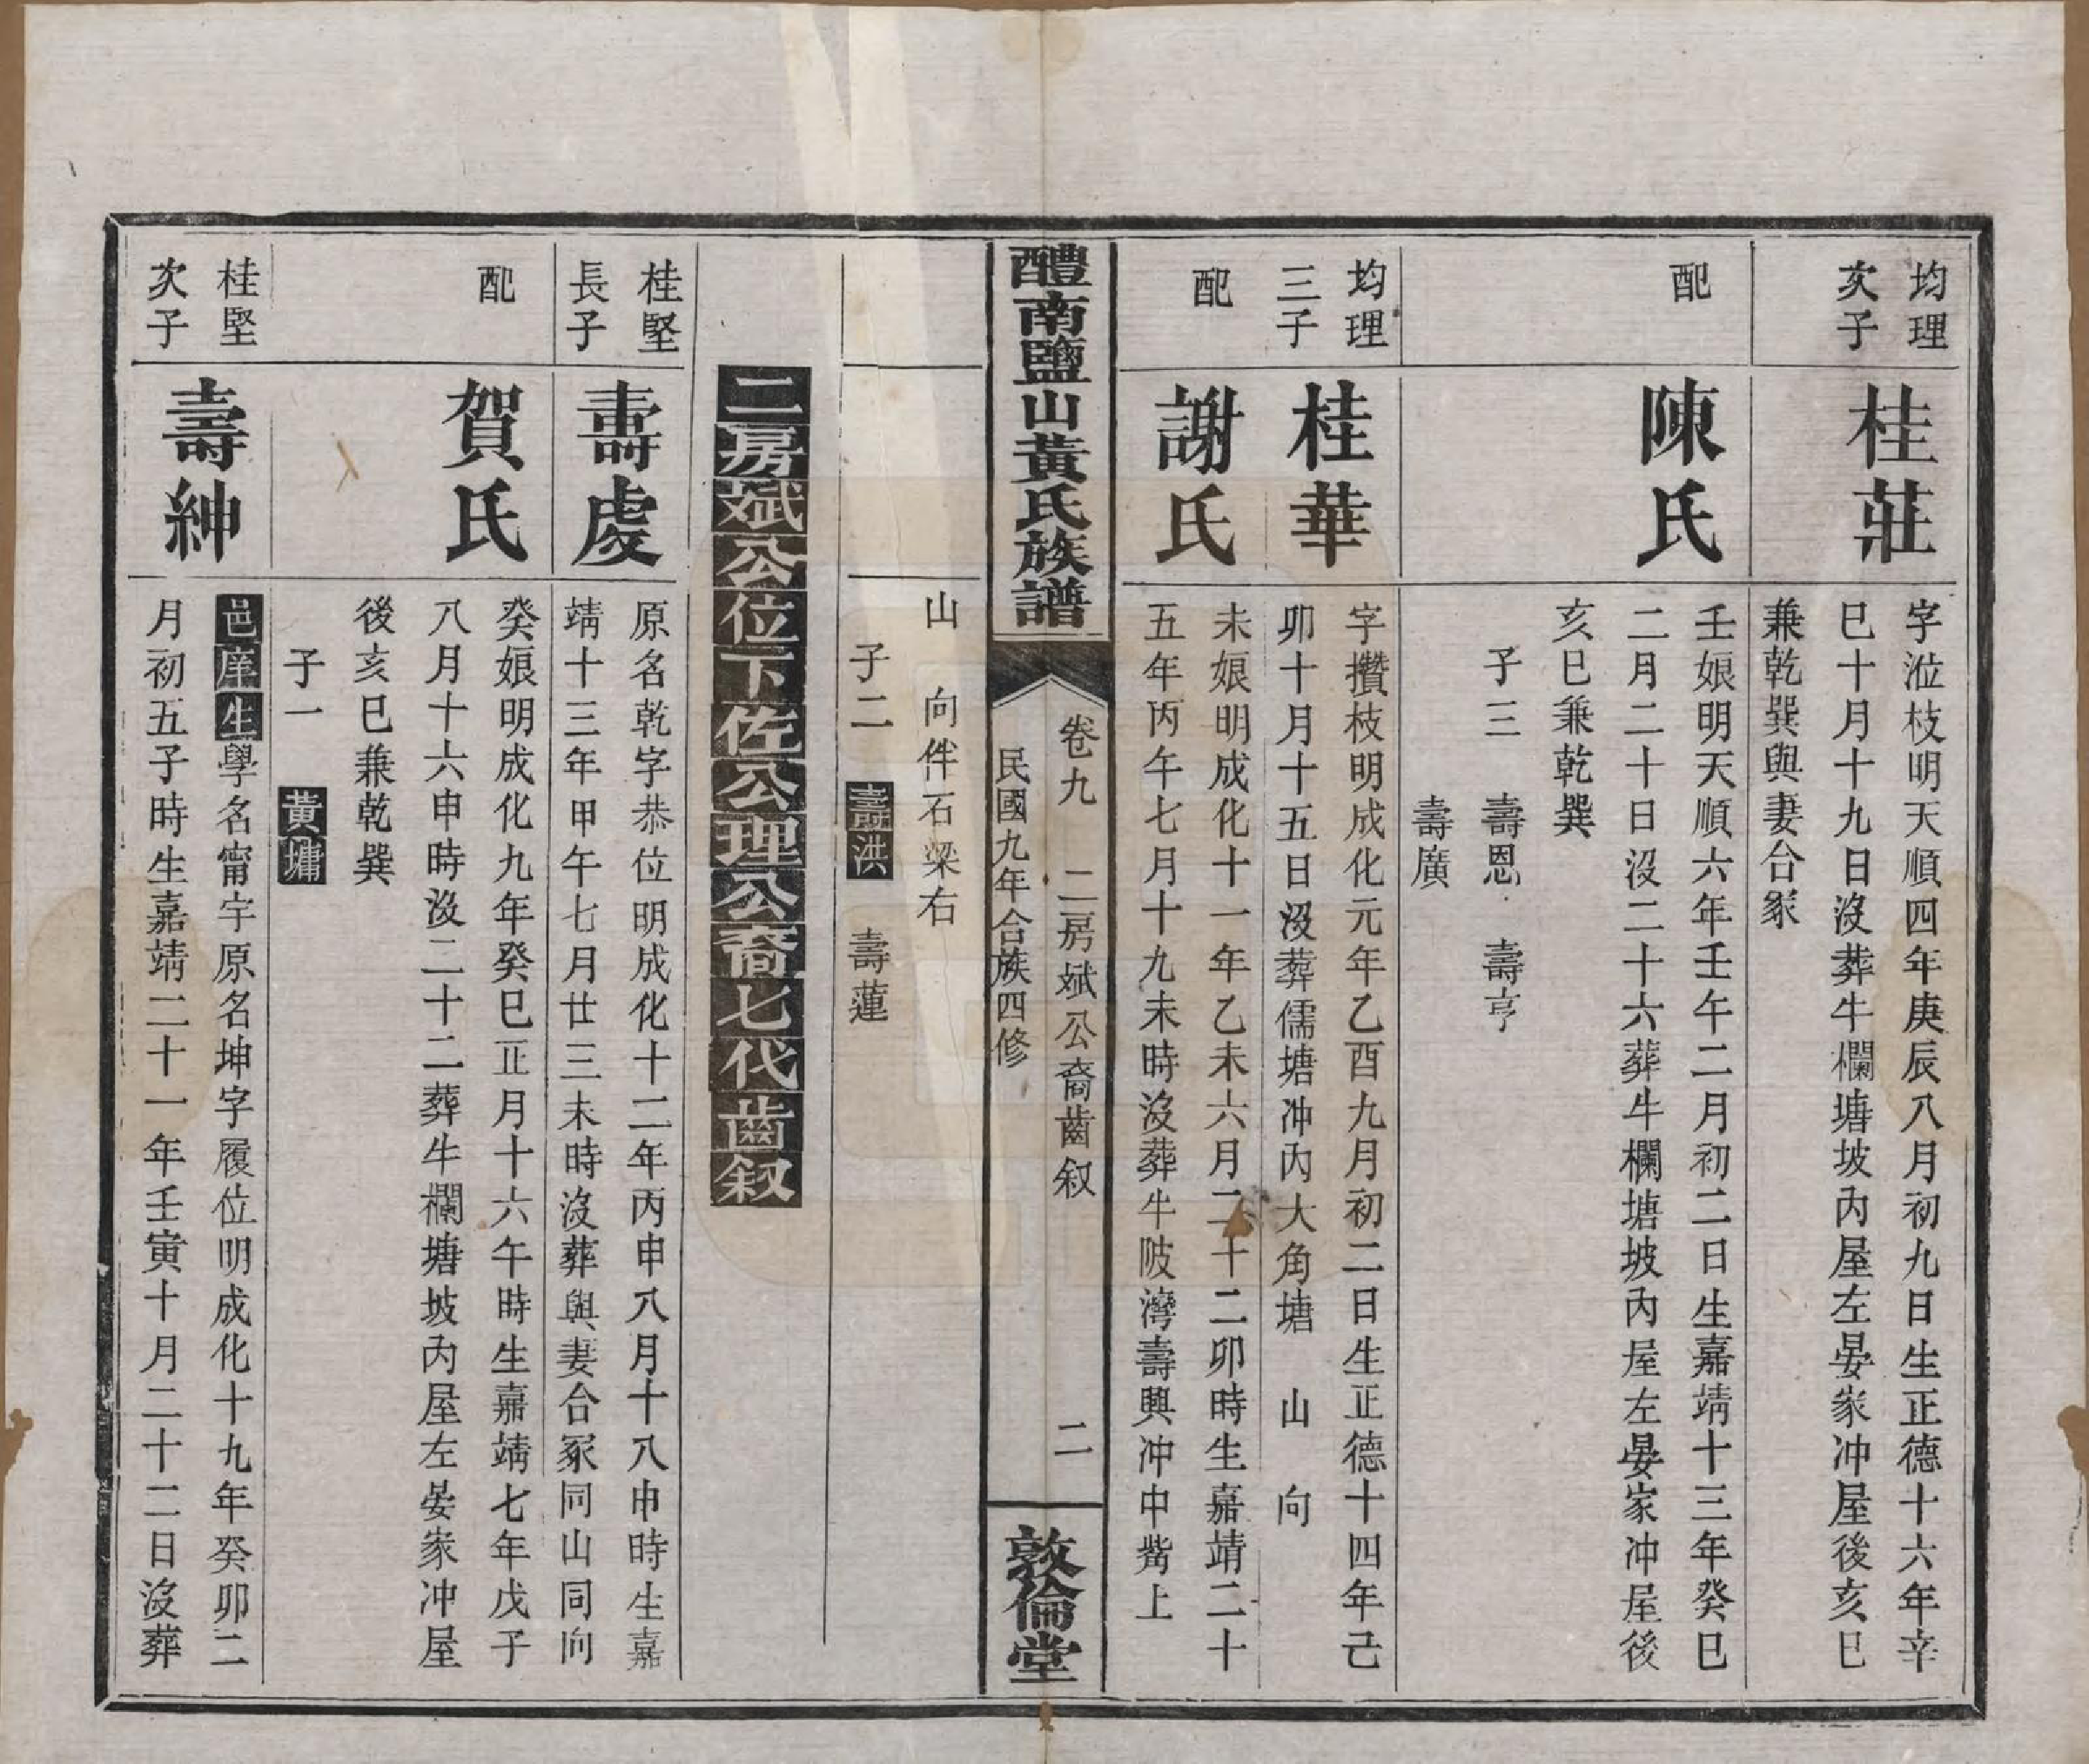 均理
次子
桂莊
字涖枝明天順四年庚辰八月初九日生正德十六年辛
巳十月十九日沒葬牛欄塘坡內屋左晏家冲屋後亥巳
兼乾巽與妻合冢
配
陳氏
壬娘明天順六年壬午二月初二日生嘉靖十三年癸巳
二月二十日沒二十六葬牛欄塘坡內屋左晏家冲屋後
亥巳兼乾巽
子三　壽恩　壽亨
壽廣
均理
三子
桂華
字攢枝明成化元年乙酉九月初二日生正德十四年己
卯十月十五日沒葬儒塘冲內大角塘　山　向
配
謝氏
未娘明成化十一年乙未六月二十二卯時生嘉靖二十
五年丙午七月十九未時沒葬牛陂灣壽興冲中嘴上
醴南鹽山黃氏族譜
卷九　二房斌公裔齒叙　二
民國九年合族四修
敦倫堂
山　向伴石梁右
子二　壽洪　壽蓮
二房斌公位下佐公理公裔七代齒叙
桂堅
長子
壽處
原名乾字恭位明成化十二年丙申八月十八申時生嘉
靖十三年甲午七月廿三未時沒葬與妻合冢同山同向
配
賀氏
癸娘明成化九年癸巳正月十六午時生嘉靖七年戊子
八月十六申時沒二十二葬牛欄塘坡內屋左晏家冲屋
後亥巳兼乾巽
子一　黃墉
桂堅
次子
壽紳
邑庠生學名甯宇原名坤字履位明成化十九年癸卯二
月初五子時生嘉靖二十一年壬寅十月二十二日沒葬